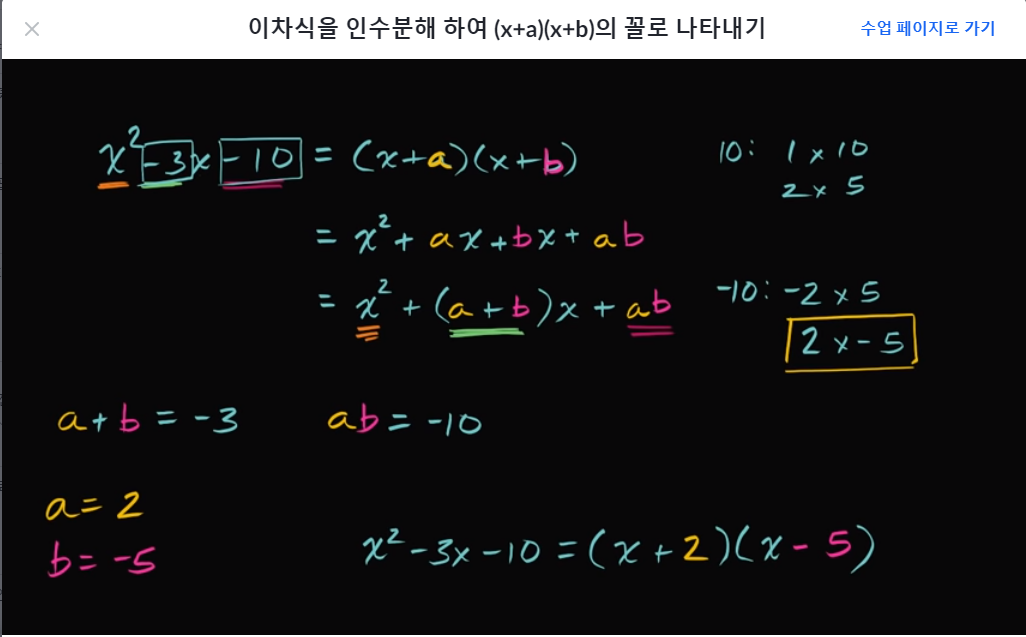 이차식을 인수분해 하여 (x+a)(x+b)의 꼴로 나타내기
수업 페이지로 가기
x² -3x -10 = (x+a)(x+b)
10: 1 x 10
2 x 5
= x² + ax + bx + ab
= x² + (a+b)x + ab
-10: -2 x 5
2 x -5
a+b = -3
ab = -10
a = 2
b = -5
x² -3x -10 = (x+2)(x-5)